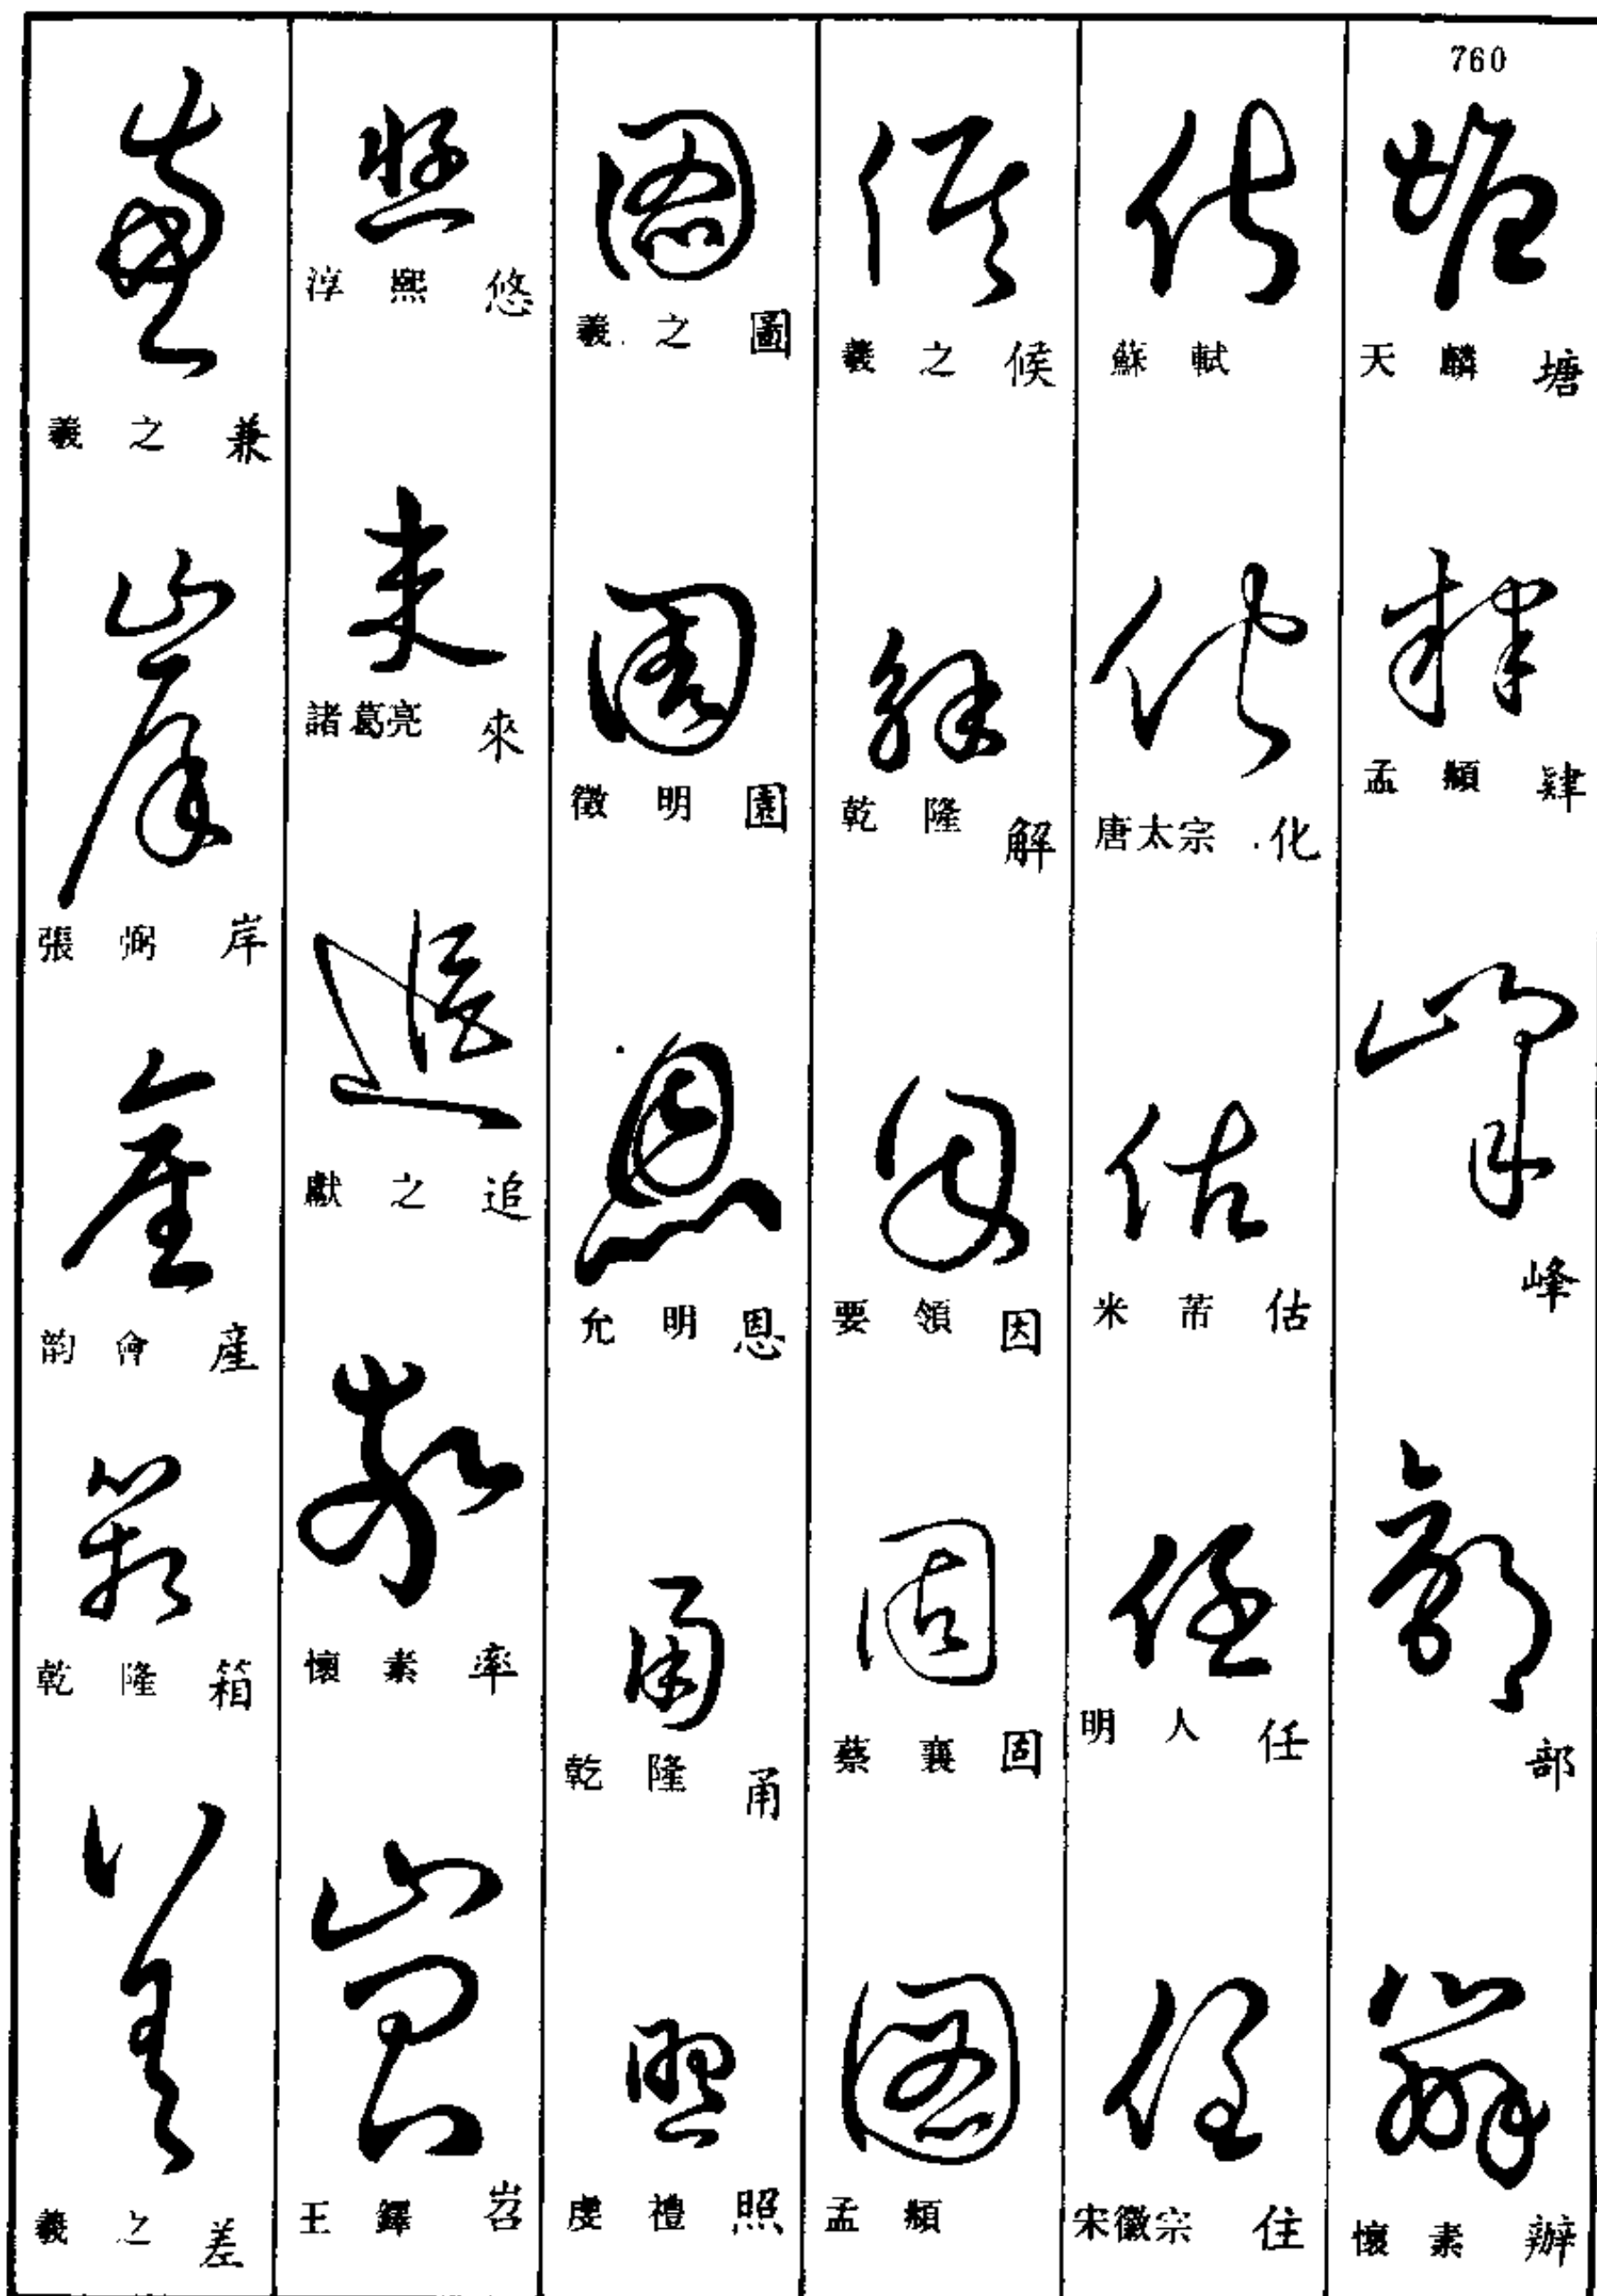 760
天麟 塘
孟頫 肄
峰
部
懷素 辦
蘇軾
唐太宗 化
米芾 估
明人 任
宋徽宗 住
羲之 候
乾隆 解
要領 因
蔡襄 固
孟頫
羲之 圖
徵明 園
允明 恩
乾隆 甬
虔禮 照
淳熙 悠
諸葛亮 來
獻之 追
懷素 率
王鐸 岧
羲之 兼
張弼 岸
韵會 産
乾隆 箱
羲之 差